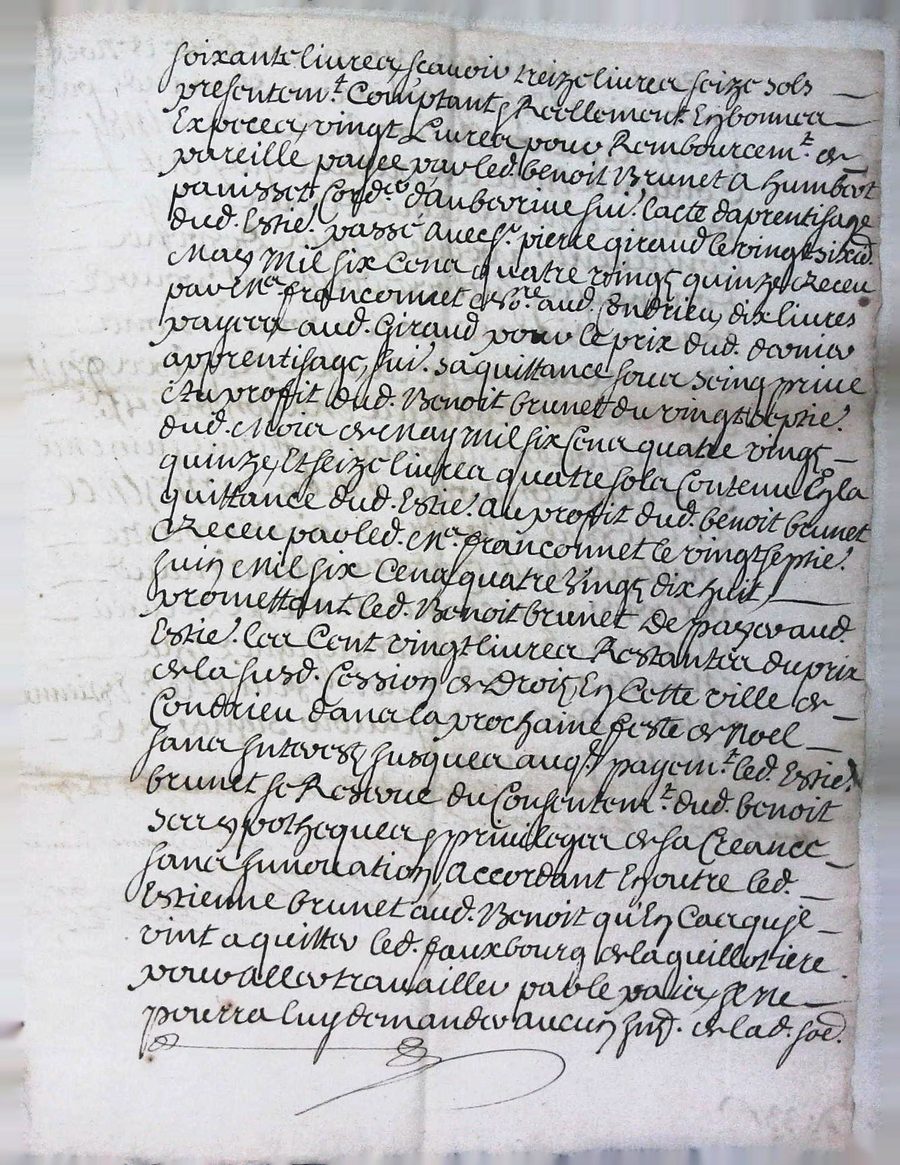 soixante livres, scavoir treize livres seize sols
presentem.t Comptant, & Reellement En bonnes
Especes, vingt Livres pour Rambourcem.t de
pareille payée par led. benoit Brunet a humbert
panisset Cord.er d'auberive suiv.t l'acte daprentisage
dud. Estie.e passé avec s.r pierre giraud le vingt sixe.
May Mil six Cens quatre vingt quinze, Receu
par M.e franconnet no.re aud. Condrieu, dix livres
payees aud. Giraud pour le prix dud. dernier
apprentisage, suiv.t sa quittance sous seing prive
Au proffit dud. Benoit brunet du vingt septie.
dud. Mois de May Mil six Cens quatre vingt
quinze, Et seize livres quatre sols Contenu En la
quittance dud. Estie.e au proffit dud. benoit brunet
Receu par led. M.e franconnet le vingt septie.
Juin Mil six Cens quatre Vingt dix huit,
promettant led. Benoit brunet De payer aud.
Estie.e les Cent vingt livres Restantes du prix
de la susd. Cession de Droit, En Cette ville de
Condrieu dans la prochaine feste de Noel
sans Interest Jusques aud. payem.t led. Estie.e
brunet se Reserve du Consentem.t dud. benoit
ses ypotheques & privileges de sa Creance
sans Innovation, Accordant En outre led.
Estienne brunet aud. Benoit qu'En Cas qu'je
vint a quitter led. fauxbourg de la quillotiere
pour aller travailler par le pais, Je ne
pourra luy demander aucun de lad.